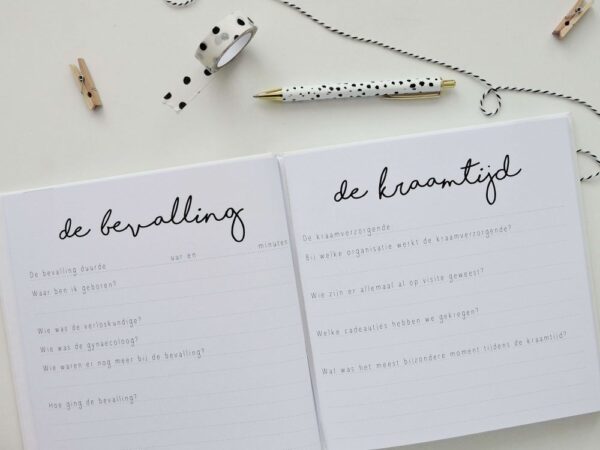 de bevalling
De bevalling duurde uur en minuten
Waar ben ik geboren?
Wie was de verloskundige?
Wie was de gynaecoloog?
Wie waren er nog meer bij de bevalling?
Hoe ging de bevalling?
de kraamtijd
De kraamverzorgende
Bij welke organisatie werkt de kraamverzorgende?
Wie zijn er allemaal al op visite geweest?
Welke cadeautjes hebben we gekregen?
Wat was het meest bijzondere moment tijdens de kraamtijd?